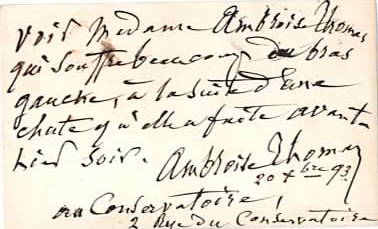 voir Madame Ambroise Thomas
qui souffre beaucoup du bras
gauche, à la suite d'une
chute qu'elle a faite avant-
hier soir.
Ambroise Thomas
20 Xbre 93
au Conservatoire,
2 Rue du Conservatoire